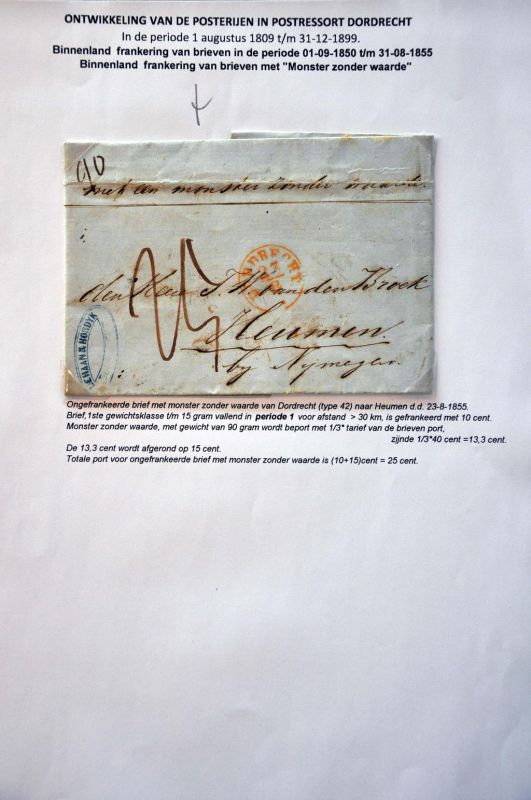 ONTWIKKELING VAN DE POSTERIJEN IN POSTRESSORT DORDRECHT
In de periode 1 augustus 1809 t/m 31-12-1899.
Binnenland frankering van brieven in de periode 01-09-1850 t/m 31-08-1855
Binnenland frankering van brieven met "Monster zonder waarde"
90
met een monster zonder waarde.
DORDRECHT
den Heer J. W. van den Broek
Heumen
by Nymegen
HAAN & HORDYK
Ongefrankeerde brief met monster zonder waarde van Dordrecht (type 42) naar Heumen d.d. 23-8-1855.
Brief,1ste gewichtsklasse t/m 15 gram vallend in periode 1 voor afstand > 30 km, is gefrankeerd met 10 cent.
Monster zonder waarde, met gewicht van 90 gram wordt beport met 1/3* tarief van de brieven port,
zijnde 1/3*40 cent =13,3 cent.
De 13,3 cent wordt afgerond op 15 cent.
Totale port voor ongefrankeerde brief met monster zonder waarde is (10+15)cent = 25 cent.